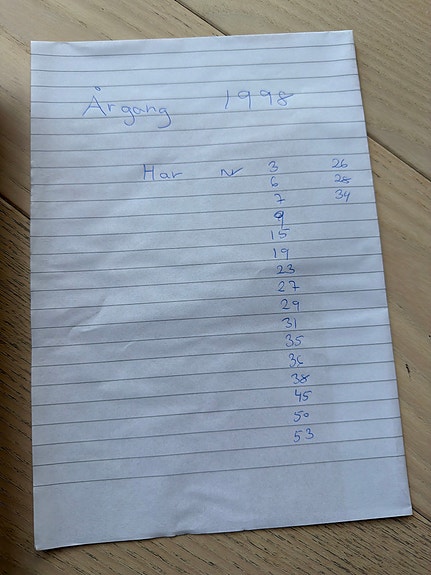 Årgang 1998
Har Nr 3 26
6 28
7 34
9
15
19
23
27
29
31
35
36
38
45
50
53